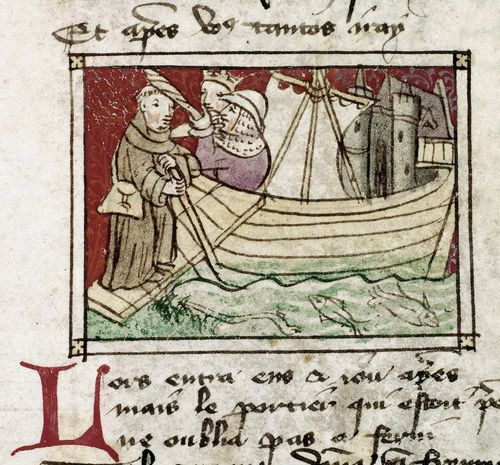 Et apres vos tantos iray
Lors entra ens & iou apres
mais le portier qui estoit pe
ne oublia pas a ferm